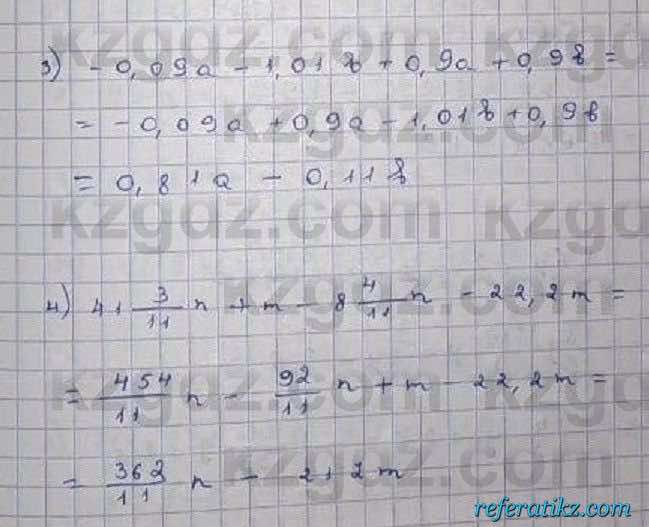 3) -0,09a - 1,01b + 0,9a + 0,9b =
= -0,09a + 0,9a - 1,01b + 0,9b
= 0,81a - 0,11b
4) 41 3/11 n + m - 8 4/11 n - 22,2m =
= 454/11 n - 92/11 n + m - 22,2m =
= 362/11 n - 21 2 m
kzgdz.com
kzgdz.com
kzgdz.com
kzgdz.com
referatikz.com